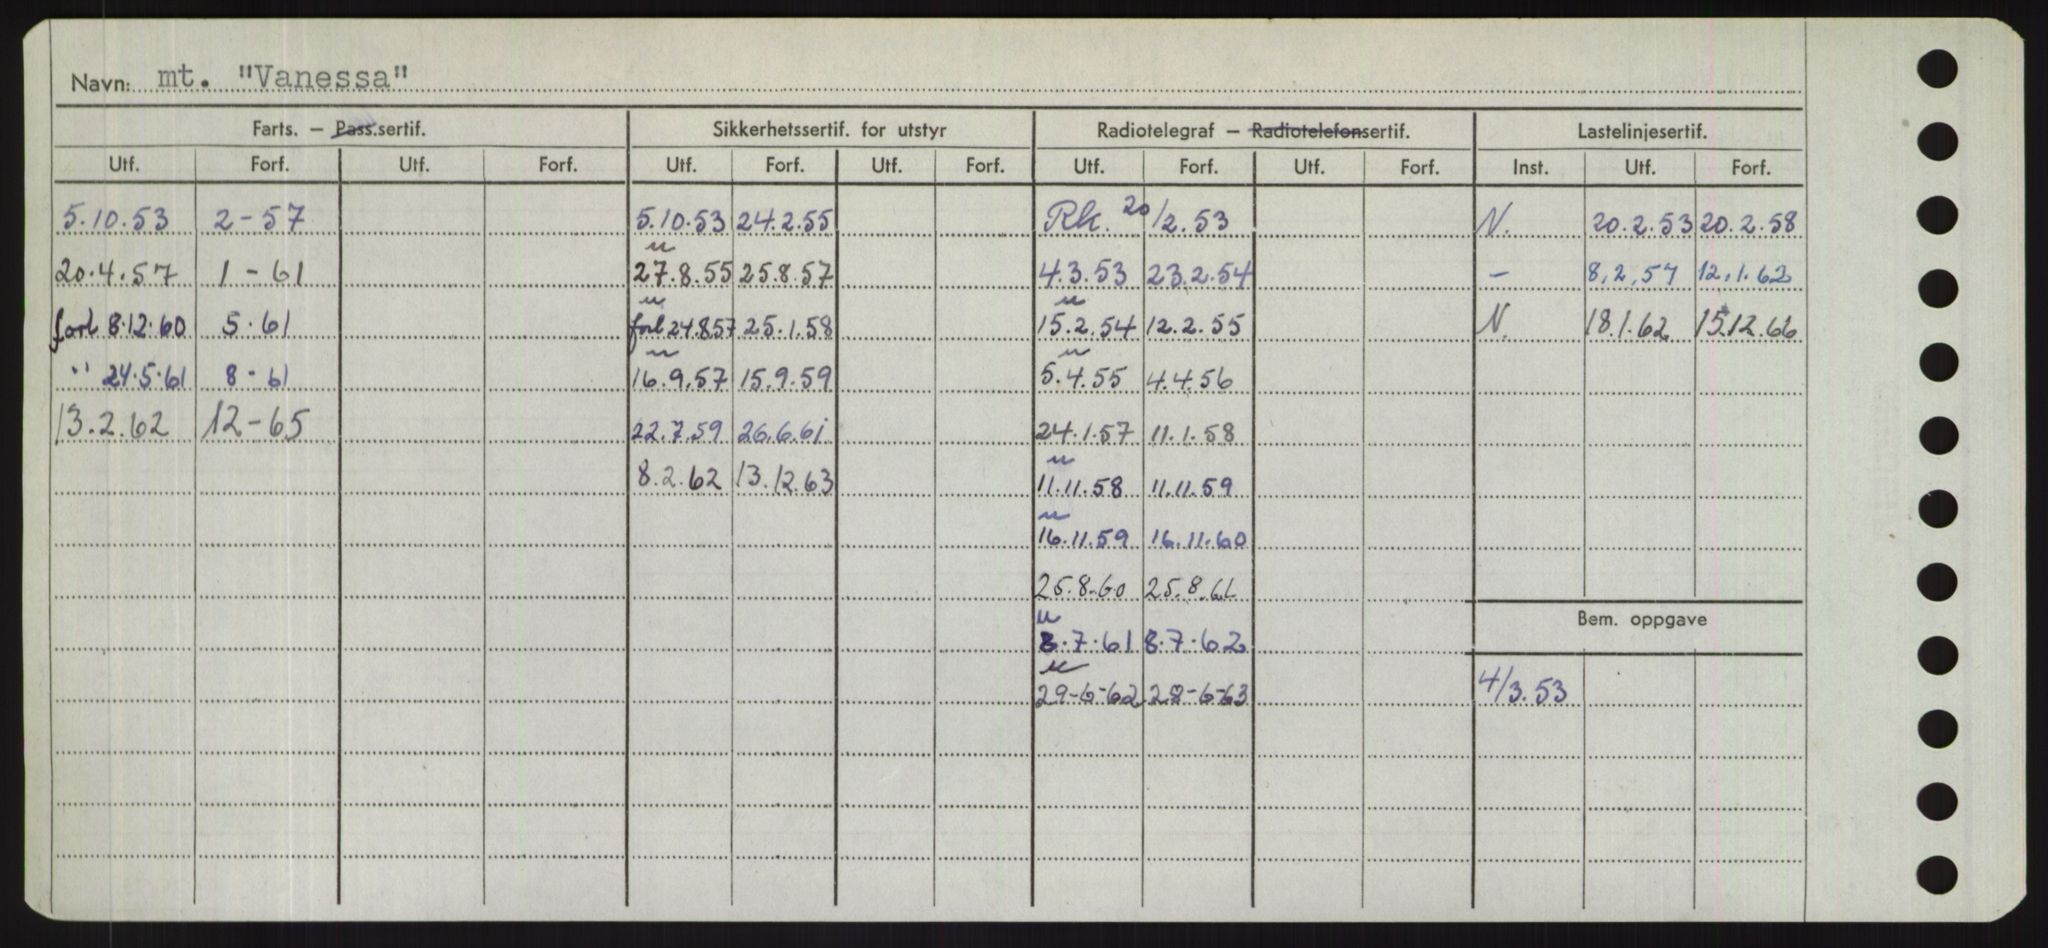 Navn: mt. "Vanessa"
Farts. – Pass.sertif. Sikkerhetssertif. for utstyr Radiotelegraf – Radiotelefonsertif. Lastelinjesertif.
Utf. Forf. Utf. Forf. Utf. Forf. Utf. Forf. Utf. Forf. Utf. Forf. Inst. Utf. Forf.
5.10.53 2-57 5.10.53 24.2.55 Rk. 20/2.53 N. 20.2.53 20.2.58
u
20.4.57 1-61 27.8.55 25.8.57 4.3.53 23.2.54 – 8,2,57 12,1.62
u u
forl 8.12.60 5.61 forl 24.8.57 25.1.58 15.2.54 12.2.55 N. 18.1.62 15.12.66
u u
" 24.5.61 8-61 16.9.57 15.9.59 5.4.55 4.4.56
13.2.62 12-65 22.7.59 26.6.61 24.1.57 11.1.58
u
8.2.62 13.12.63 11.11.58 11.11.59
u
16.11.59 16.11.60
25.8.60 25.8.61
Bem. oppgave
u
8.7.61 8.7.62
u
29-6-62 28-6-63 4/3.53